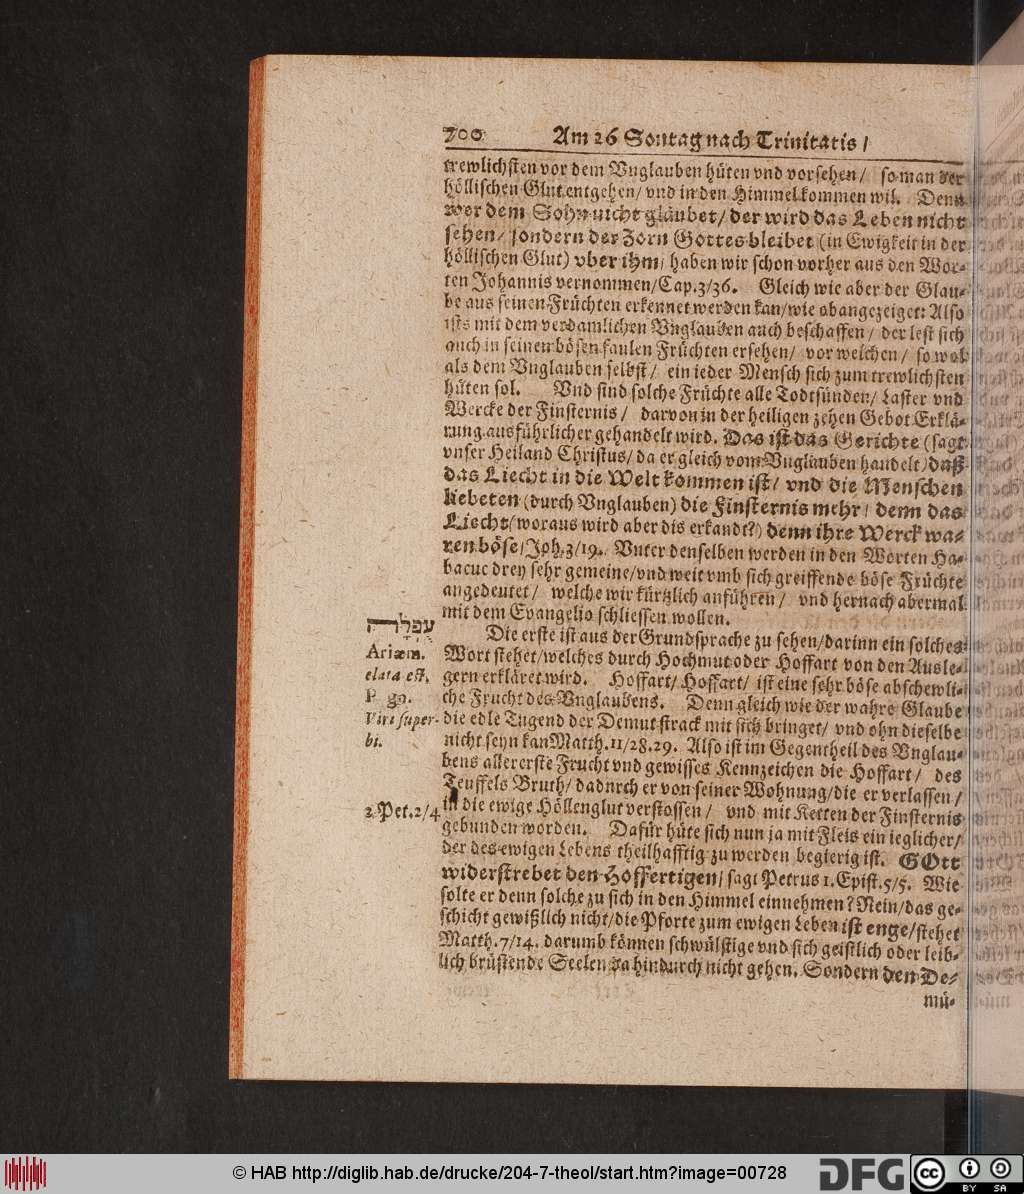 700 Am 26 Sontag nach Trinitatis /
trewlichsten vor dem Vnglauben hüten vnd vorsehen / so man der
höllischen Glut entgehen / vnd in den Himmel kommen wil. Denn
wer dem Sohn nicht gläubet / der wird das Leben nicht
sehen / sondern der Zorn Gottes bleibet (in Ewigkeit in der
höllischen Glut) vber ihm / haben wir schon vorher aus den Wor-
ten Johannis vernommen / Cap. 3/36. Gleich wie aber der Glau-
be aus seinen Früchten erkennet werden kan / wie obangezeiget: Also
ists mit dem verdamlichen Vnglauben auch beschaffen / der lest sich
auch in seinen bösen faulen Früchten ersehen / vor welchen / so wol
als dem Vnglauben selbst / ein ieder Mensch sich zum trewlichsten
hüten sol. Vnd sind solche Früchte alle Todtsünden / Laster vnd
Wercke der Finsternis / darvon in der heiligen zehen Gebot Erklä-
rung ausführlicher gehandelt wird. Das ist das Gerichte (sagt
vnser Heiland Christus / da er gleich vom Vnglauben handelt) daß
das Liecht in die Welt kommen ist / vnd die Menschen
liebeten (durch Vnglauben) die Finsternis mehr / denn das
Liecht / (woraus wird aber dis erkandt?) denn ihre Werck wa-
ren böse / Joh. 3/19. Vnter denselben werden in den Worten Ha-
bacuc drey sehr gemeine / vnd weit vmb sich greiffende böse Früchte
angedeutet / welche wir kürtzlich anführen / vnd hernach abermal
mit dem Evangelio schliessen wollen.
Die erste ist aus der Grundsprache zu sehen / darinn ein solches
Wort stehet / welches durch Hochmut oder Hoffart von den Ausle-
gern erkläret wird. Hoffart / Hoffart / ist eine sehr böse abschewli-
che Frucht des Vnglaubens. Denn gleich wie der wahre Glaube
die edle Tugend der Demut strack mit sich bringet / vnd ohn dieselbe
nicht seyn kan Matth. 11/28.29. Also ist im Gegentheil des Vnglau-
bens allererste Frucht vnd gewisses Kennzeichen die Hoffart / des
Teuffels Bruth / dadurch er von seiner Wohnung / die er verlassen /
in die ewige Höllenglut verstossen / vnd mit Ketten der Finsternis
gebunden worden. Dafür hüte sich nun ja mit Fleis ein ieglicher /
der des ewigen Lebens theilhafftig zu werden begierig ist. GOtt
widerstrebet den Hoffertigen / sagt Petrus 1. Epist. 5/5. Wie
solte er denn solche zu sich in den Himmel einnehmen? Nein / das ge-
schicht gewißlich nicht / die Pforte zum ewigen Leben ist enge / stehet
Matth. 7/14. darumb können schwülstige vnd sich geistlich oder leib-
lich brüstende Seelen da hindurch nicht gehen. Sondern den De-
mü-
עֻפְּלָה
Ariæm.
elata est.
Viri super-
bi.
2 Pet. 2/4
© HAB http://diglib.hab.de/drucke/204-7-theol/start.htm?image=00728
DFG
cc BY SA